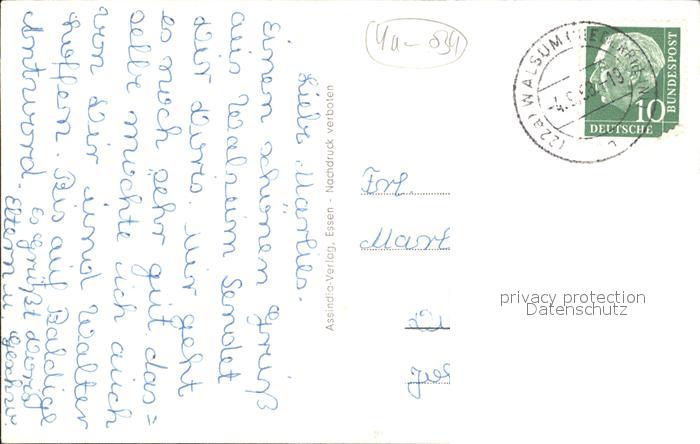 Liebe Marlies.
Einen schönen Gruß
aus Walsum sendet
Dir Doris. Mir geht
es noch sehr gut das=
selbe möchte ich auch
von Dir und Walter
hoffen. Bis auf Baldige
Antword.
Es grüßt Doris
Eltern u. Geschw.
Assindia-Verlag, Essen - Nachdruck verboten
4u-034
Frl.
Marl
(22a) WALSUM
-4.9.58-19
10
DEUTSCHE
BUNDESPOST
privacy protection
Datenschutz